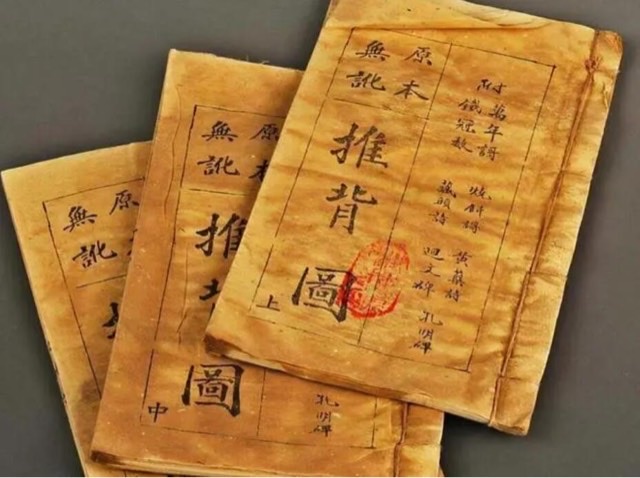 附
萬年謌
鐵冠數
燒餅謌
藏頭詩
黃蘗詩
迴文碑
孔明碑
原本
無訛
推背圖
上
孔明碑
原本
無訛
推背圖
中
原
無訛